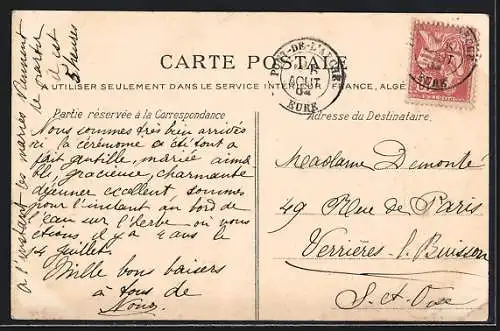 CARTE POSTALE
A UTILISER SEULEMENT DANS LE SERVICE INTÉRIEUR FRANCE, ALGÉ
Partie réservée à la Correspondance
Adresse du Destinataire.
PONT-DE-L'ARCHE
AOUT
04
EURE
EURE
Nous sommes très bien arrivés
la cérémonie a été tout a
fait gentille, mariée aima
ble, gracieuse, charmante
déjeuner excellent, sommes
pour l'instant au bord de
l'eau sur l'herbe où nous
étions il y a 2 ans le
14 Juillet.
Mille bons baisers
à tous de
Nous
à l'instant les mariés viennent
de partir
il est
5 heures
Madame Demonté
49 Rue de Paris
Verrières l. Buisson
S. et Oise